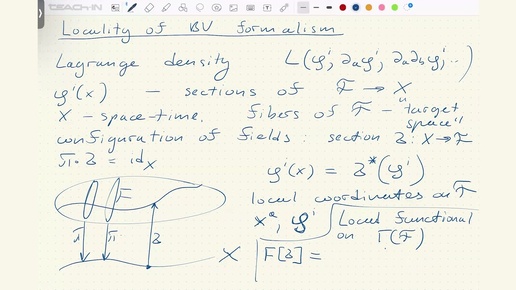 TEACH-IN
Locality of BV formalism
Lagrange density L(φⁱ, ∂ₐφⁱ, ∂ₐ∂_bφⁱ, ...)
φⁱ(x) — sections of F → X
X - space-time. fibers of F - "target space"
configuration of fields: section з: X → F
π∘з = id_X
φⁱ(x) = з*(φⁱ)
local coordinates on F
xᵃ, φⁱ
Local functional
on Γ(F)
F[з] =
F
π π з
X